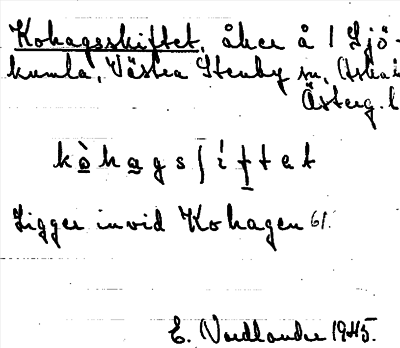 Kohagsskiftet, åker å 1 Sjö-
kumla, Västra Stenby sn, Aska
Österg. l
kòhagsʃíftet
Ligger invid Kohagen 61.
E. Nordlander 1945.